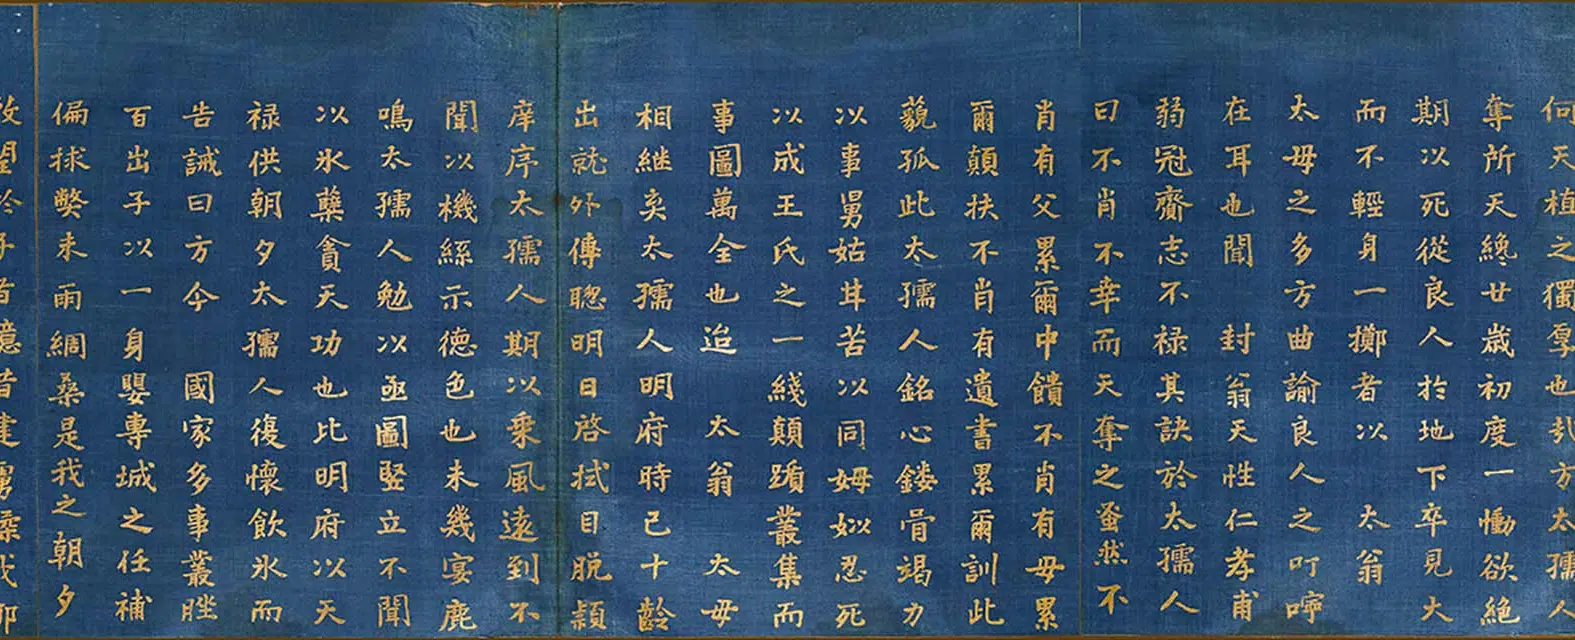 何天植之獨厚也哉方太孺人
奪所天纔廿歲初度一慟欲絕
期以死從良人於地下卒見大
而不輕身一擲者以 太翁
太毋之多方曲諭良人之叮嚀
在耳也聞 封翁天性仁孝甫
弱冠齎志不祿其訣於太孺人
曰不肖不幸而天奪之蚤然不
肖有父累爾中饋不肖有毋累
爾顛扶不肖有遺書累爾訓此
藐孤此太孺人銘心鏤骨竭力
以事舅姑甘苦以同姆姒忍死
以成王氏之一綫顛躓叢集而
事圖萬全也迨 太翁 太毋
相継矣太孺人明府時已十齡
出就外傳聰明日啓拭目脱穎
庠序太孺人期以乗風遠到不
聞以機絲示德色也未幾宴鹿
鳴太孺人勉以亟圖竪立不聞
以氷蘗貪天功也比明府以天
禄供朝夕太孺人復懷飲氷而
告誡曰方今 國家多事叢脞
百出子以一身嬰專城之任補
偏捄弊未雨綢桑是我之朝夕